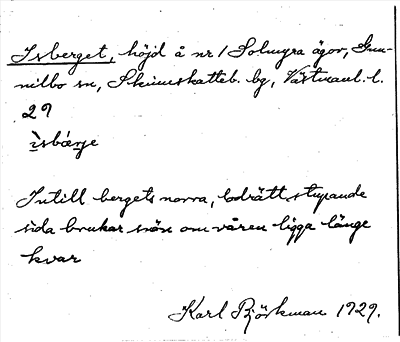 Isberget, höjd å nr 1 Solmyra ägor, Gun-
nilbo sn, Skinnskatteb. bg, Västmanl. l.
29
ìsbær̀je
Intill bergets norra, lodrätt stupande
sida brukar snön om våren ligga länge
kvar
Karl Björkman 1929.